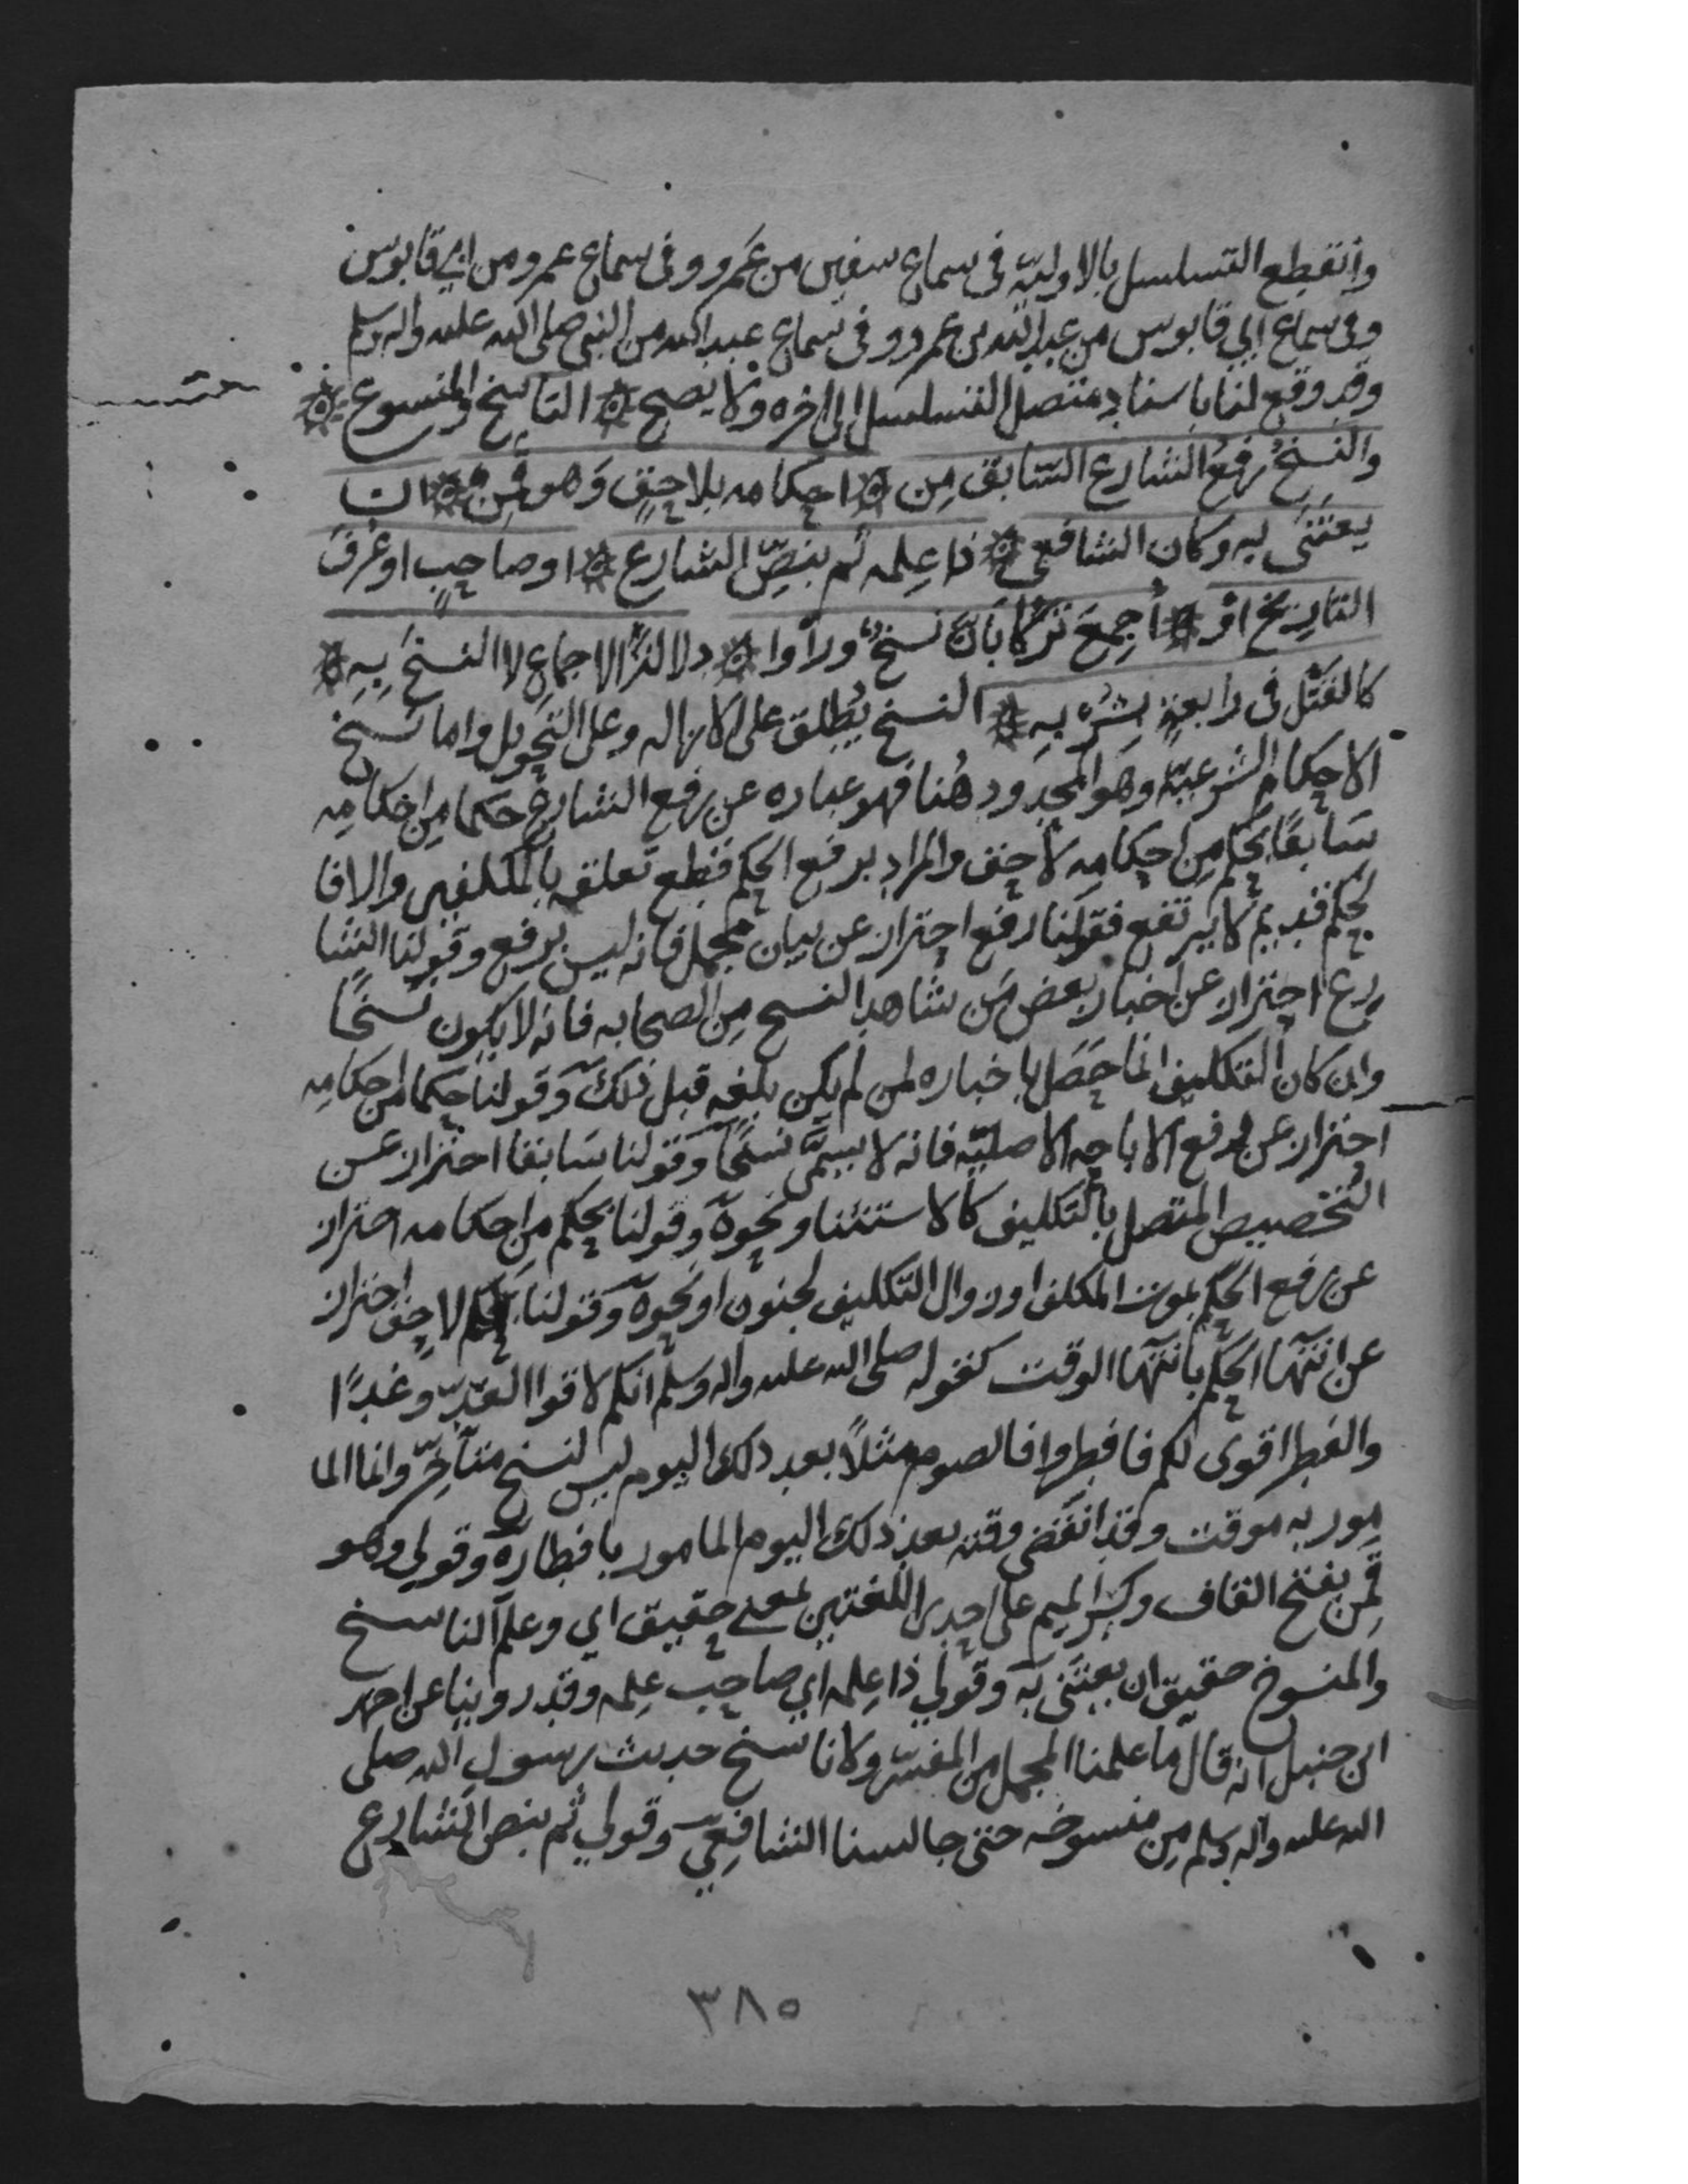 وانقطع التسلسل بالاوليّة في سماع سفين من عَمرو وفي سماع عمرو من ابي قابوس
وفي سماع ابي قابوس من عبد الله بن عمرو وفي سماع عبد الله من النبي صلى الله عليه واله وسلم
وقد وقع لنا باسناد متصل التسلسل الى اخره ولا يصح ۞ الناسخ والمنسوخ ۞
والنسخُ رفعُ الشارع السّابقَ مِن ۞ احكامه بلاحقٍ وَهو قَمِن ۞ ان
يعتَنَى به وكان الشافعي ۞ ذا عِلمه ثم بنصِّ الشارع ۞ او صاحبٍ او عُرفَ
التاريخ اوْ ۞ أُجمِعَ تركًا بَانَ نسخٌ وراوا ۞ دلالةَ الاجماعِ لا النسخَ بِهِ ۞
كالقَتْل في رابعةٍ بشُربهِ ۞ النسخ يُطلق على الازاله وعلى التحويل واما نسخ
الاحكام الشرعيّة وهو المحدود هُنا فهو عباره عن رفع الشارع حكما مِن احكامِه
سَابقًا بحكم مِن احكامِه لاحق والمراد برفع الحكم قطع تعلقه بالمكلفين والا فا
لحكم قديم لا يرتفع فقولنا رفع احتراز عن بيان مجمل فانه ليس برفع وقولنا الشا
رع احتراز عن اخبار بعض مَن شاهد النسخ مِن الصحابه فانه لا يكون نسخًا
وان كان التكليف انما حَصَل باخباره لمن لم يكن بلغه قبل ذلك وَقولنا حكما من احكامِه
احتراز عن رفع الاباحه الاصليّه فانه لا يسمَّى نسخًا وَقولنا سَابقا احتراز عن
التخصيص المتصل بالتكليف كالاستثنا ونحوه وَقولنا بحكم من احكامه احتراز
عن رفع الحكم بموت المكلف او زوال التكليف لجنون او نحوه وَقولنا بحكم لاحق احتراز
عن انتها الحكم بانتها الوقت كقوله صلى الله عليه واله وسلم انكم لاقوا العدوّ غدًا
والفطر اقوى لكم فافطروا فالصوم مثلاً بعد ذلك اليوم ليس لنسخ متاخِّر وانما الما
مور به موقت وقد انقضى وقته بعد ذلك اليوم المامور بافطاره وَقولي وهو
قَمِن بفتح القاف وكسر الميم على احدى اللغتين بمعنى حقيق اي وعلم الناسخ
والمنسوخ حقيق ان يعتَنى به وَقولي ذا عِلمه اي صاحب عِلمه وقد روينا عن احمد
ابن حنبل انه قال ما علمنا المجمل من المفسّر ولا ناسخ حديث رسول الله صلى
الله عليه واله وسلم مِن منسوخه حتى جالسنا الشافعيَّ وَقولي ثم بنص الشارع
٣٨٥